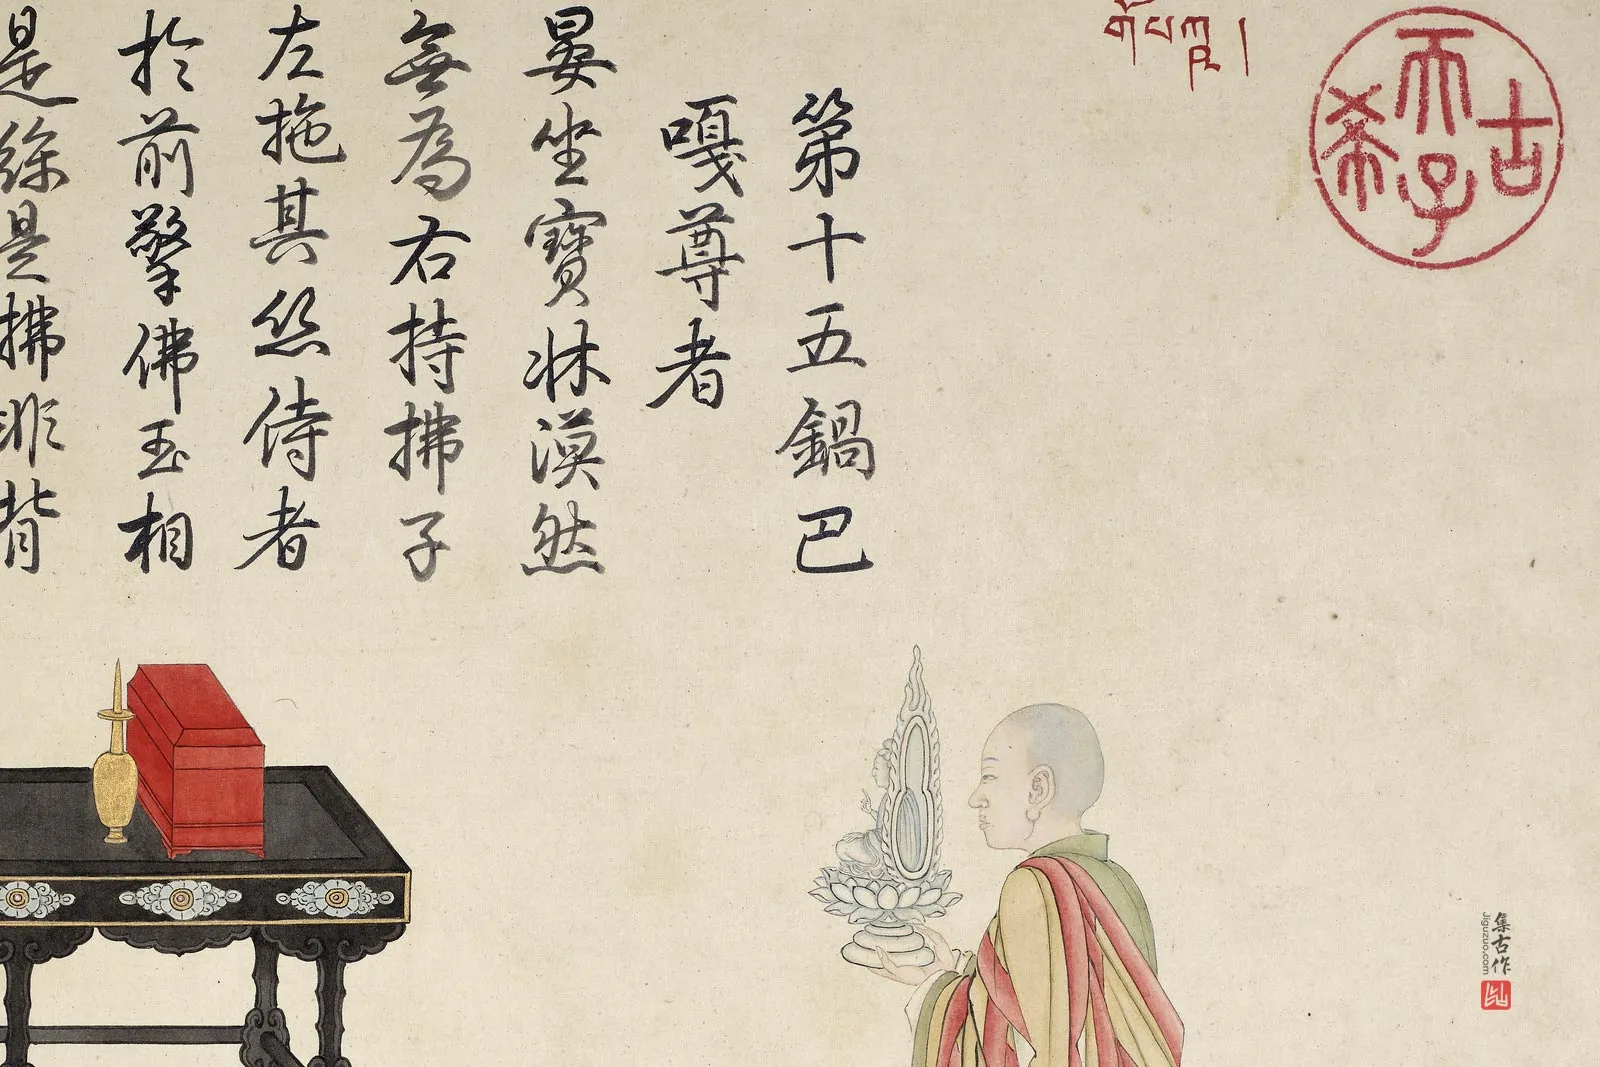 古希天子
第十五鍋巴
嘎尊者
晏坐寶牀漠然
無為右持拂子
左拖其絲侍者
於前擎佛玉相
是是拂非背
集古作
jiguzuo.com